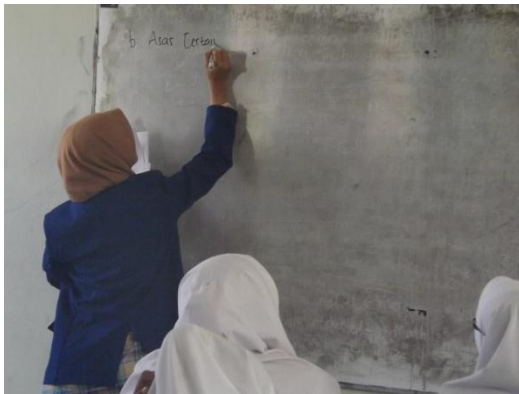 b Asas Certan